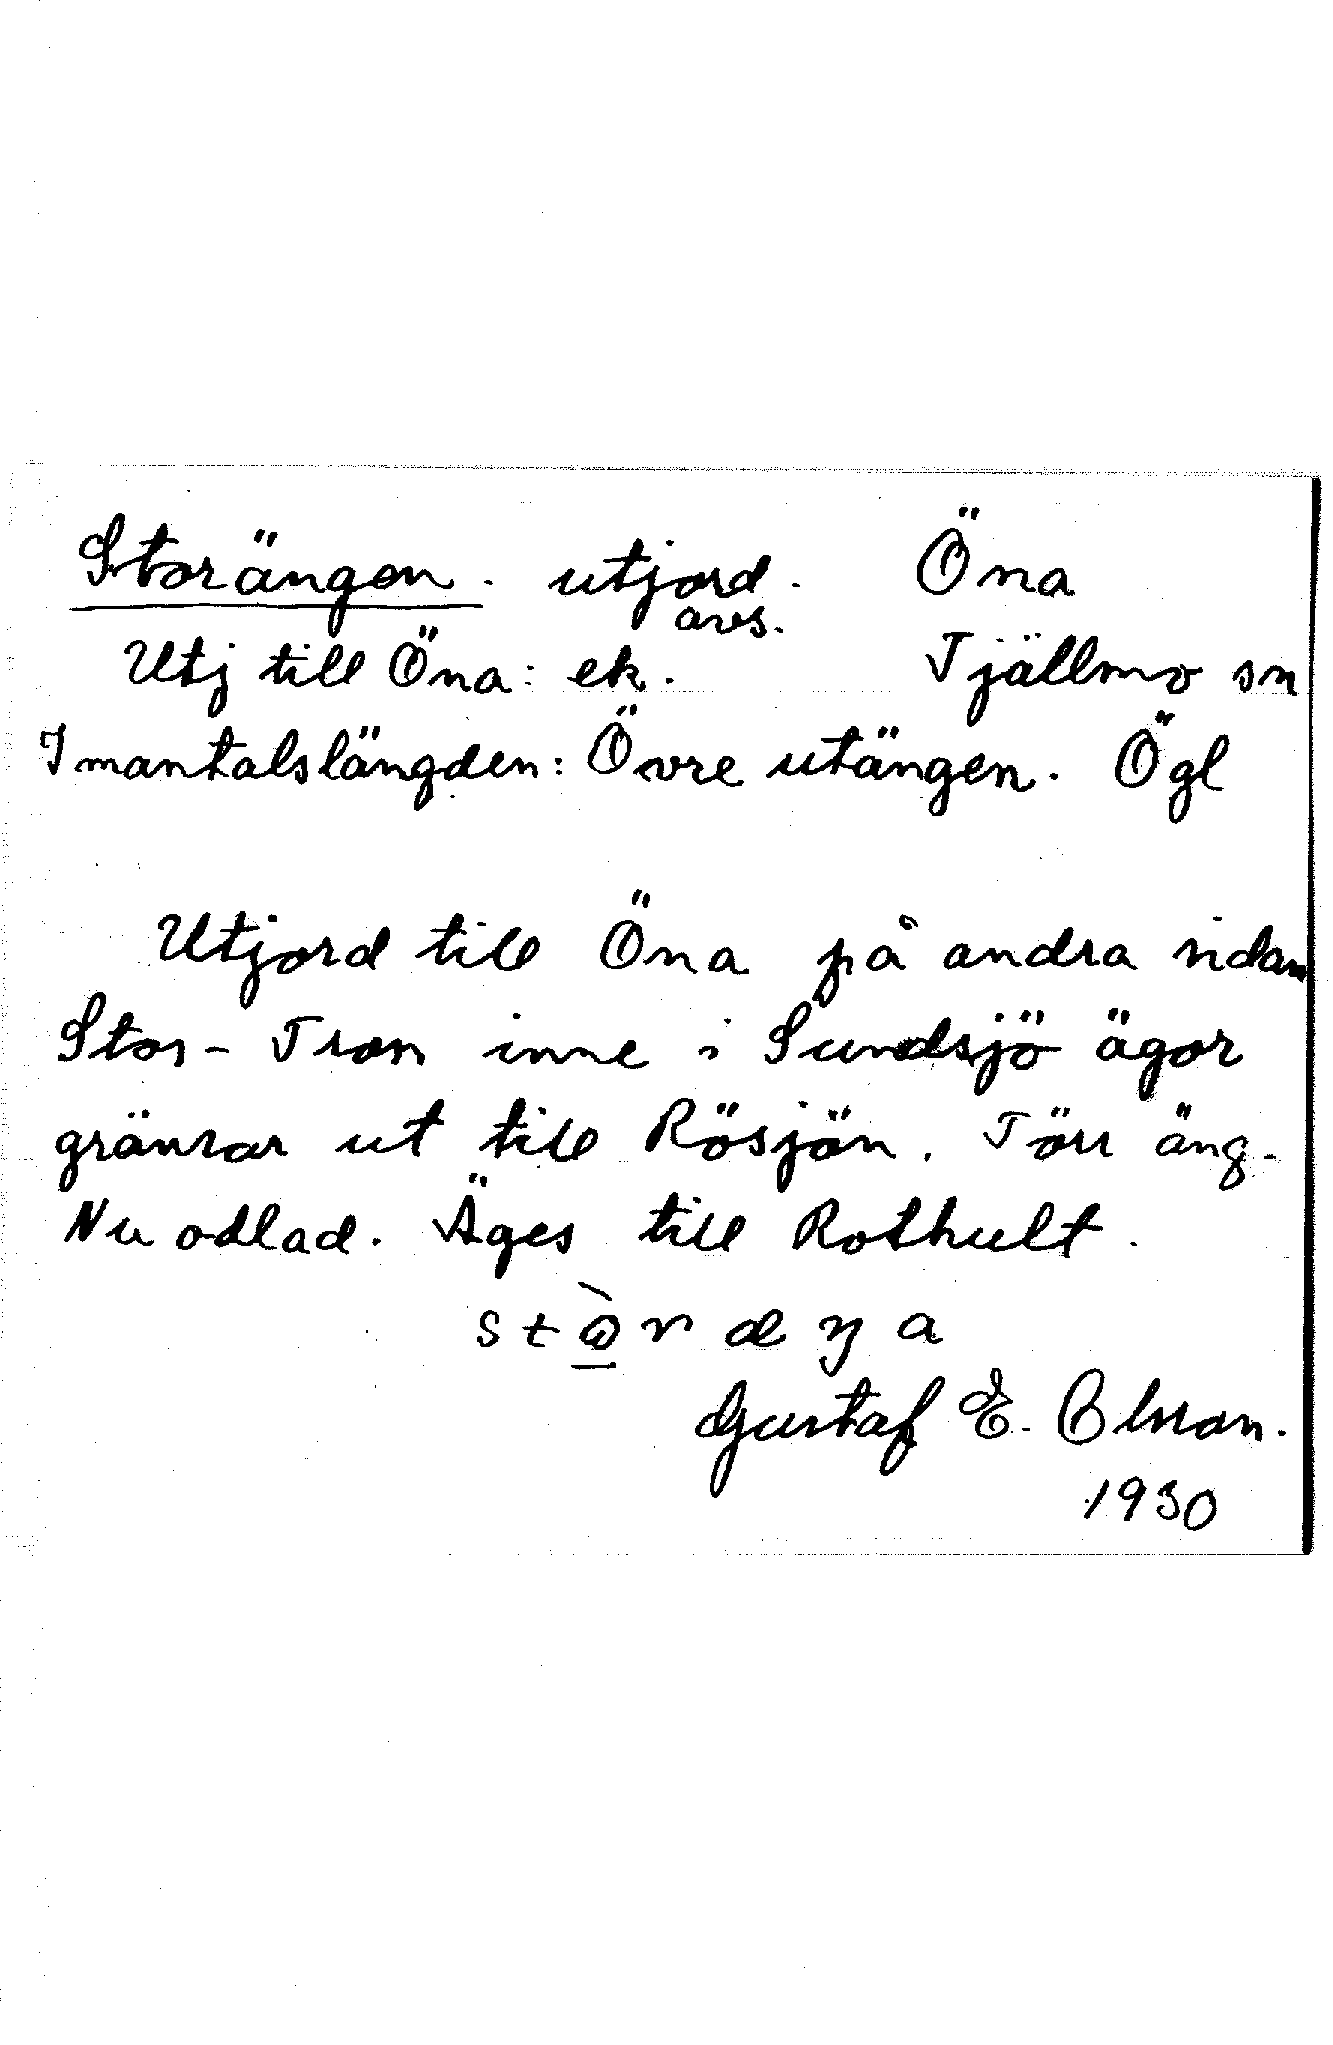 Storängen. utjord. Öna
avs.
Utj till Öna: ek. Tjällmo sn
I mantalslängden: Övre utängen. Ögl
Utjord till Öna på andra sidan
Stor-Tron inne i Sundsjö ägor
gränsar ut till Rösjön. Törr äng-
Nu odlad. Äges till Rothult.
stò̱ræŋa
Gustaf E. Olsson.
1930